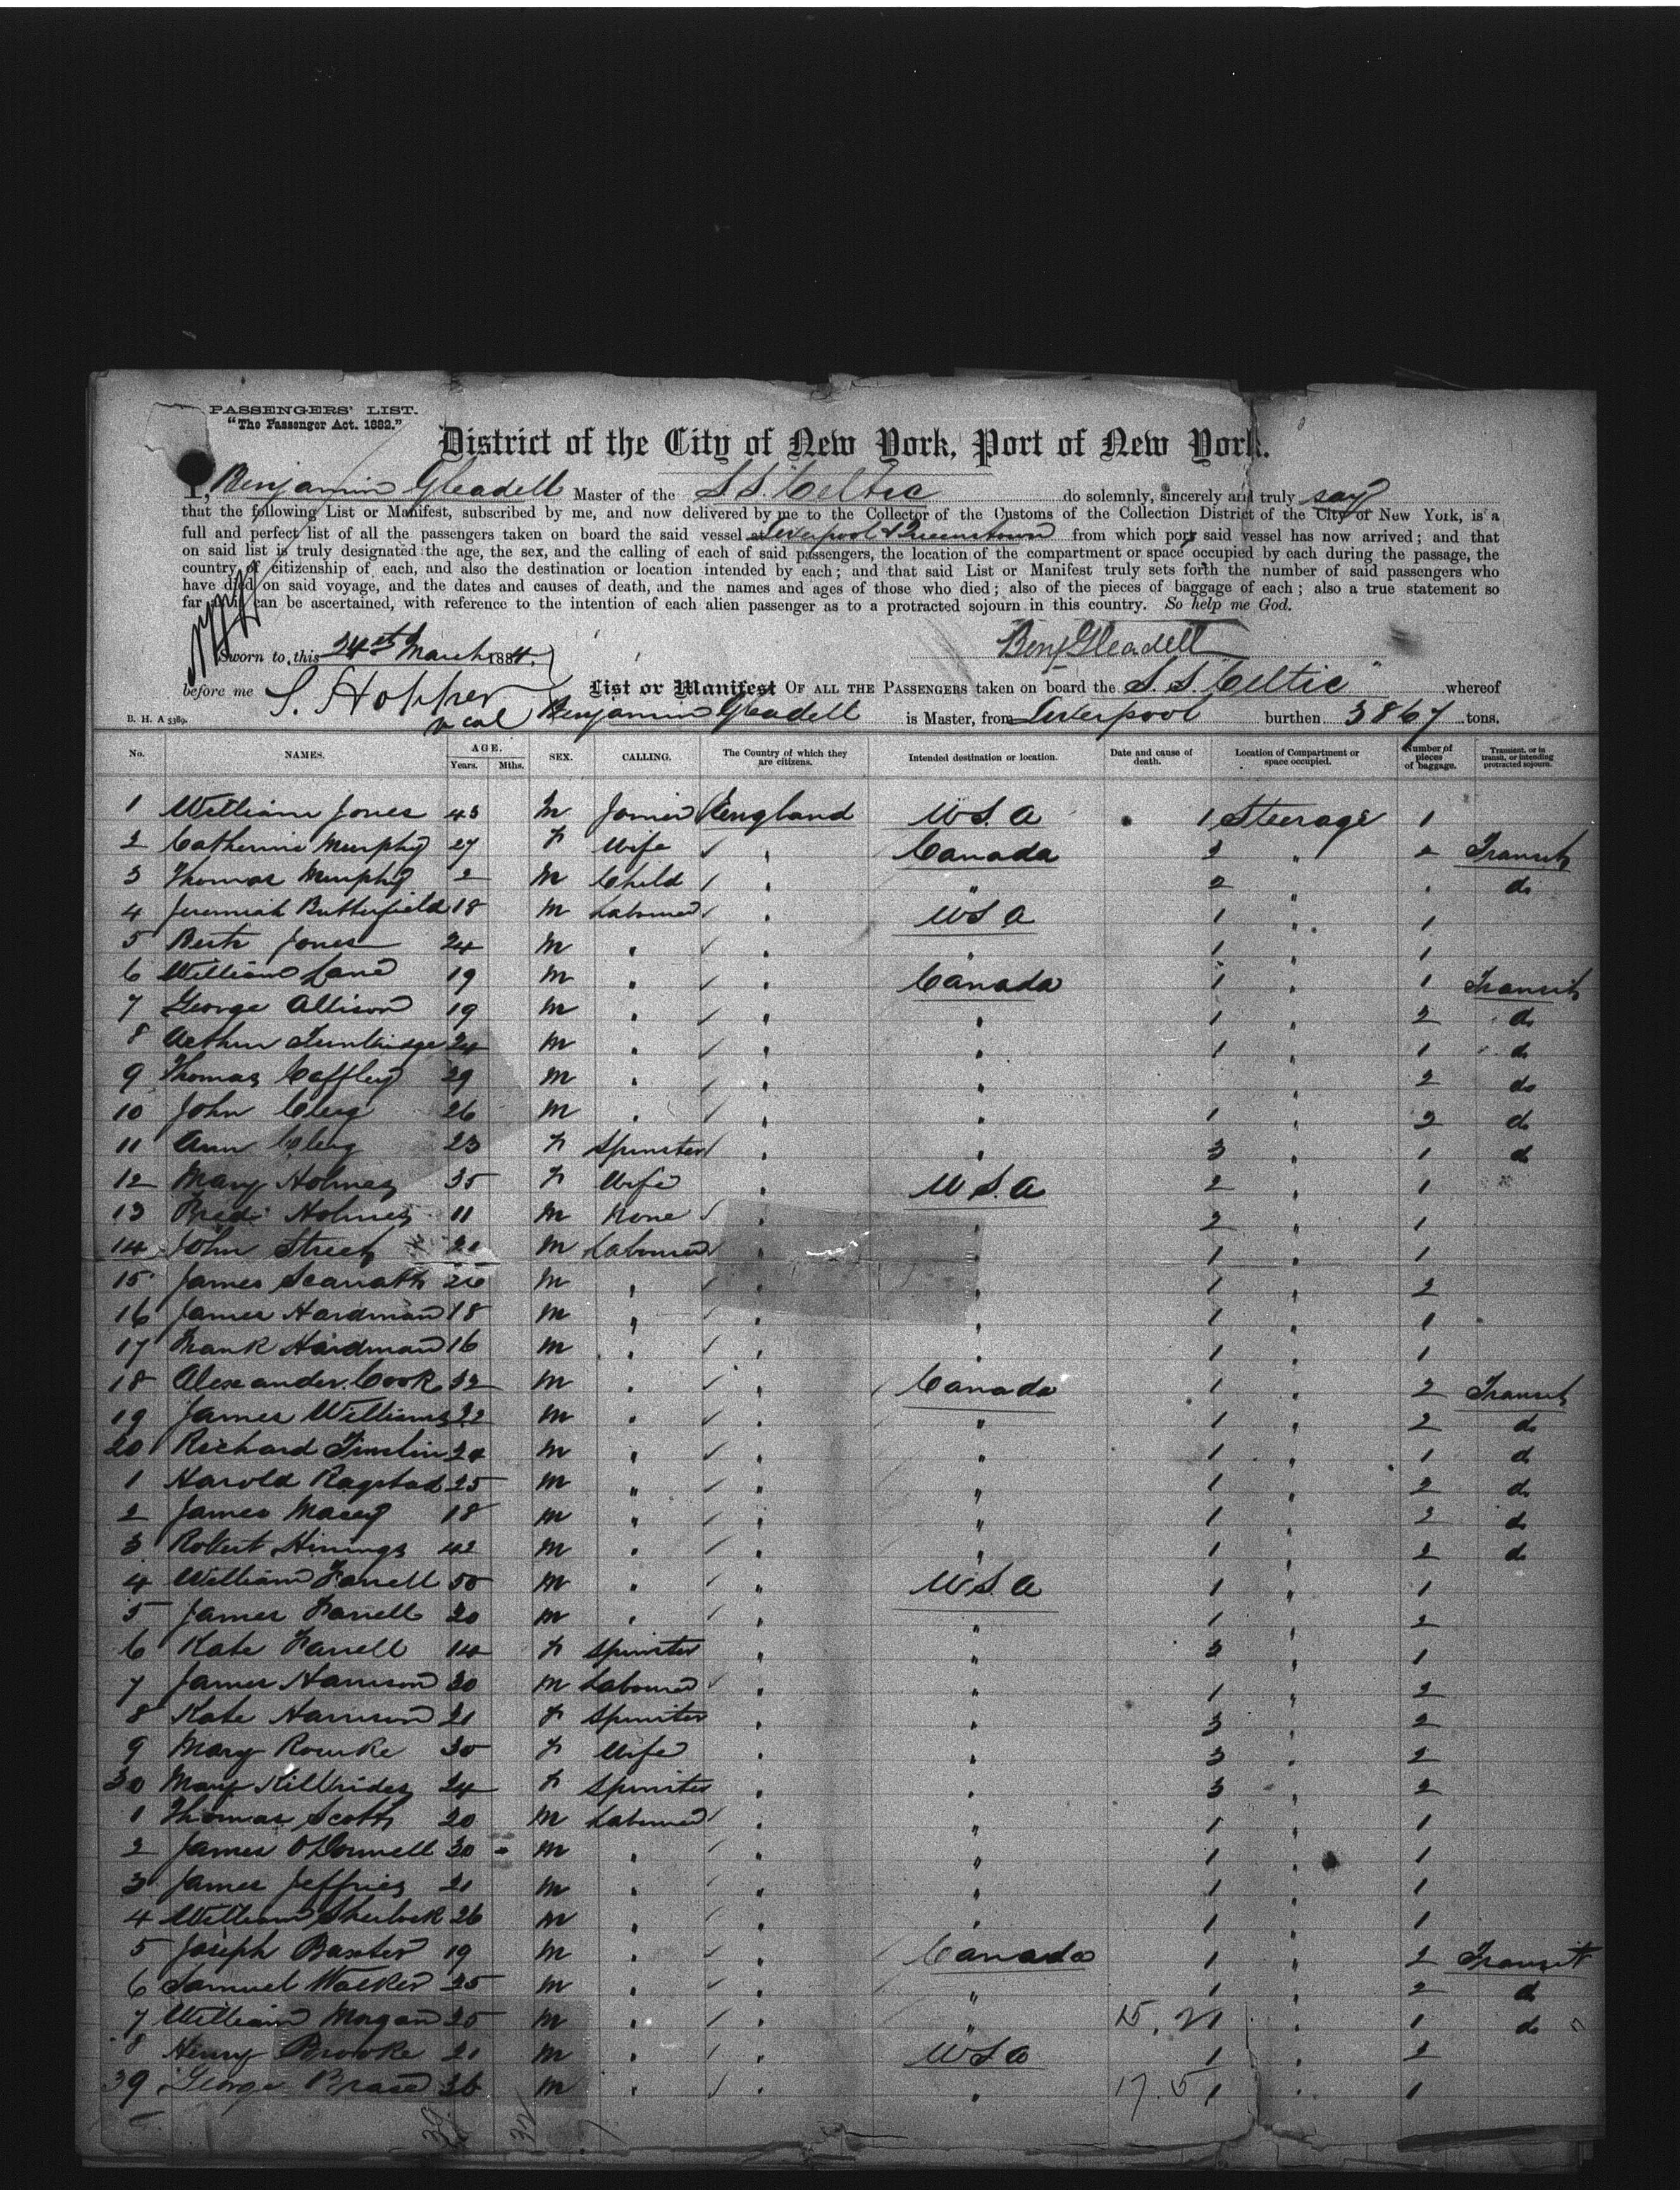 PASSENGERS' LIST.
"The Passenger Act. 1882."
District of the City of New York, Port of New York.
I, Benjamin Gleadell Master of the S.S. Celtic do solemnly, sincerely and truly say
that the following List or Manifest, subscribed by me, and now delivered by me to the Collector of the Customs of the Collection District of the City of New York, is a
full and perfect list of all the passengers taken on board the said vessel at Liverpool & Queenstown from which port said vessel has now arrived; and that
on said list is truly designated the age, the sex, and the calling of each of said passengers, the location of the compartment or space occupied by each during the passage, the
country of citizenship of each, and also the destination or location intended by each; and that said List or Manifest truly sets forth the number of said passengers who
have died on said voyage, and the dates and causes of death, and the names and ages of those who died; also of the pieces of baggage of each; also a true statement so
far as it can be ascertained, with reference to the intention of each alien passenger as to a protracted sojourn in this country. So help me God.
Sworn to this 24th March 1884. Benj Gleadell
before me S. Hopper List or Manifest OF ALL THE PASSENGERS taken on board the S.S. Celtic whereof
B. H. A 5389. Benjamin Gleadell is Master, from Liverpool burthen 3867 tons.
No. NAMES. AGE. Years. Mths. SEX. CALLING. The Country of which they are citizens. Intended destination or location. Date and cause of death. Location of Compartment or space occupied. Number of pieces of baggage. Transient, or in transit, or intending protracted sojourn.
1 William Jones 43 M Joiner England U.S.A 1 Steerage 1
2 Catherine Murphy 27 F Wife " Canada 2 " 2 Transit
3 Thomas Murphy 2 M Child " " 2 " " do
4 Jeremiah Butterfield 18 M Labourer " U.S.A 1 " 1
5 Jones 24 M " " " 1 " 1
6 William Lane 19 M " " Canada 1 " 1 Transit
7 George Allison 19 M " " " 1 " 2 do
8 Arthur Tunbridge 24 M " " " 1 " 1 do
9 Thomas Caffley 29 M " " " " 2 do
10 John Cleig 26 M " " " 1 " 2 do
11 Ann Cleig 23 F Spinster " " 3 " 1 do
12 Mary Holmes 35 F Wife " U.S.A 2 " 1
13 Fred Holmes 11 M None " " 2 " 1
14 John Street 21 M Labourer " " 1 " 1
15 James 26 M " " " 1 " 2
16 James Hardman 18 M " " " 1 " 1
17 Frank Hardman 16 M " " " 1 " 1
18 Alexander Cook 32 M " " Canada 1 " 2 Transit
19 James Williams 22 M " " " 1 " 2 do
20 Richard 24 M " " " 1 " 1 do
1 Harold Ragstad 25 M " " " 1 " 2 do
2 James Macey 18 M " " " 1 " 2 do
3 Robert Hinings 42 M " " " 1 " 2 do
4 William Farrell 50 M " " U.S.A 1 " 1
5 James Farrell 20 M " " " 1 " 2
6 Kate Farrell 14 F Spinster " " 3 " 1
7 James Harrison 30 M Labourer " " 1 " 2
8 Kate Harrison 21 F Spinster " " 3 " 2
9 Mary Rourke 30 F Wife " " 3 " 2
30 Mary Kilbride 24 F Spinster " " 3 " 2
1 Thomas Scott 20 M Labourer " " 1 " 1
2 James O'Donnell 30 M " " " 1 " 1
3 James Jeffries 21 M " " " 1 " 1
4 William Sherlock 26 M " " " 1 " 1
5 Joseph Baxter 19 M " " Canada 1 " 2 Transit
6 Samuel Walker 25 M " " " 1 " 2 do
7 William Morgan 25 M " " " 1 " 1 do
8 Henry Brooke 21 M " " U.S.A 1 " 2
39 George 36 M " " " 17.5 1 " 1